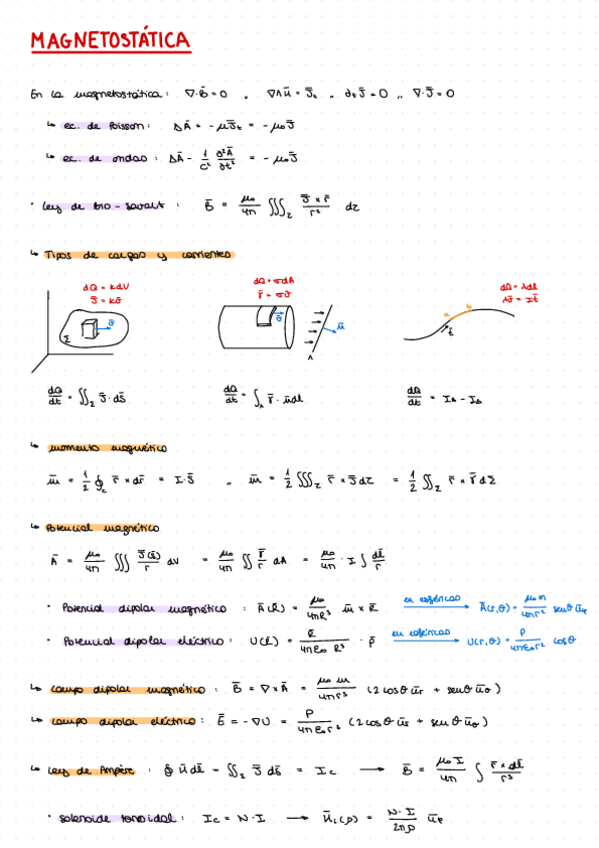 MAGNETOSTÁTICA
En la magnetostática: ∇·B̄ = 0 , ∇∧H̄ = J̄ₜ , ∂ₜJ̄ = 0 ,, ∇·J̄ = 0
↳ ec. de Poisson: ΔĀ = -μJ̄ₜ = -μ₀J̄
↳ ec. de ondas: ΔĀ - 1/c² ∂²Ā/∂t² = -μ₀J̄
· Ley de Bio-Savart: B̄ = μ₀/4π ∭_Σ J̄ × r̄/r³ dτ
↳ Tipos de cargas y corrientes
dQ = kdV dQ = σdA dQ = λdl
J̄ = kv̄ γ̄ = σv̄ λv̄ = It̄
dQ/dt = ∬_Σ J̄·dS̄ dQ/dt = ∫_Λ γ̄·n̄dl dQ/dt = I_A - I_B
↳ momento magnético
m̄ = 1/2 ∮_c r̄ × dr̄ = I·S̄ ,, m̄ = 1/2 ∭_Σ r̄ × J̄dτ = 1/2 ∬_Σ r̄ × γ̄dΣ
↳ Potencial magnético
Ā = μ₀/4π ∭ J̄(s̄)/r dV = μ₀/4π ∬ γ̄/r dA = μ₀/4π · I ∫ dl̄/r
· Potencial dipolar magnético: Ā(R̄) = μ₀/4πR³ m̄ × R̄ en esféricas → Ā(r,θ) = μ₀m/4πr² senθ ūφ
· Potencial dipolar eléctrico: U(R̄) = R̄/4πε₀R³ · p̄ en esféricas → U(r,θ) = P/4πε₀r² cosθ
↳ campo dipolar magnético: B̄ = ∇×Ā = μ₀m/4πr³ (2cosθ ūr + senθ ūθ)
↳ campo dipolar eléctrico: Ē = -∇U = P/4πε₀r³ (2cosθ ūr + senθ ūθ)
↳ Ley de Ampère: ∮ H̄dl̄ - ∬_Σ J̄ dS̄ = Ic → B̄ = μ₀I/4π ∫ r̄ × dl̄/r³
· solenoide toroidal: Ic = N·I → H̄i(ρ) = N·I/2πρ ūφ